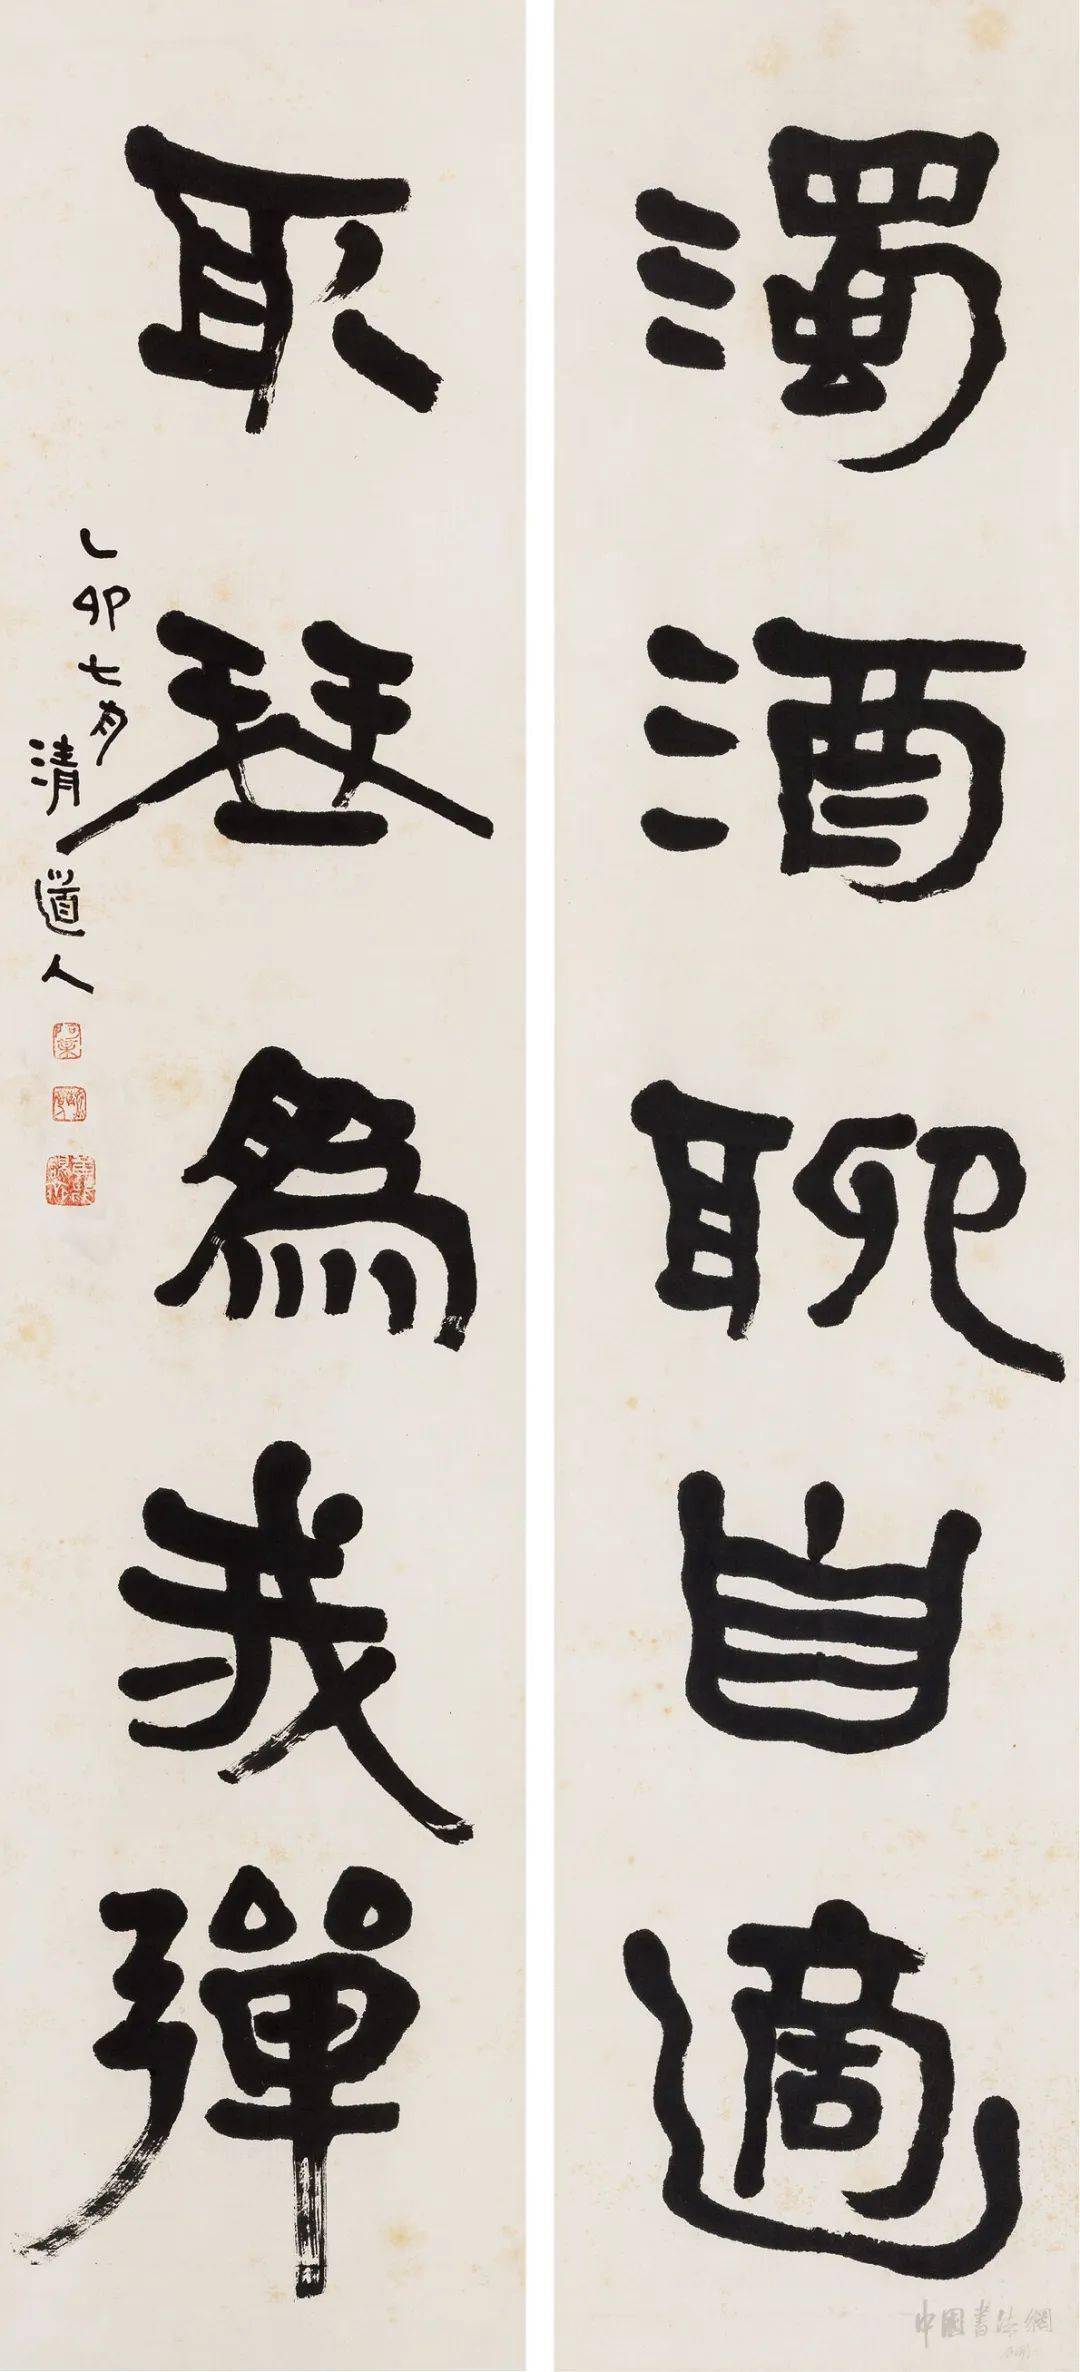 濁酒聊自適
取琴為我彈
乙卯七月
清道人
中國書法網